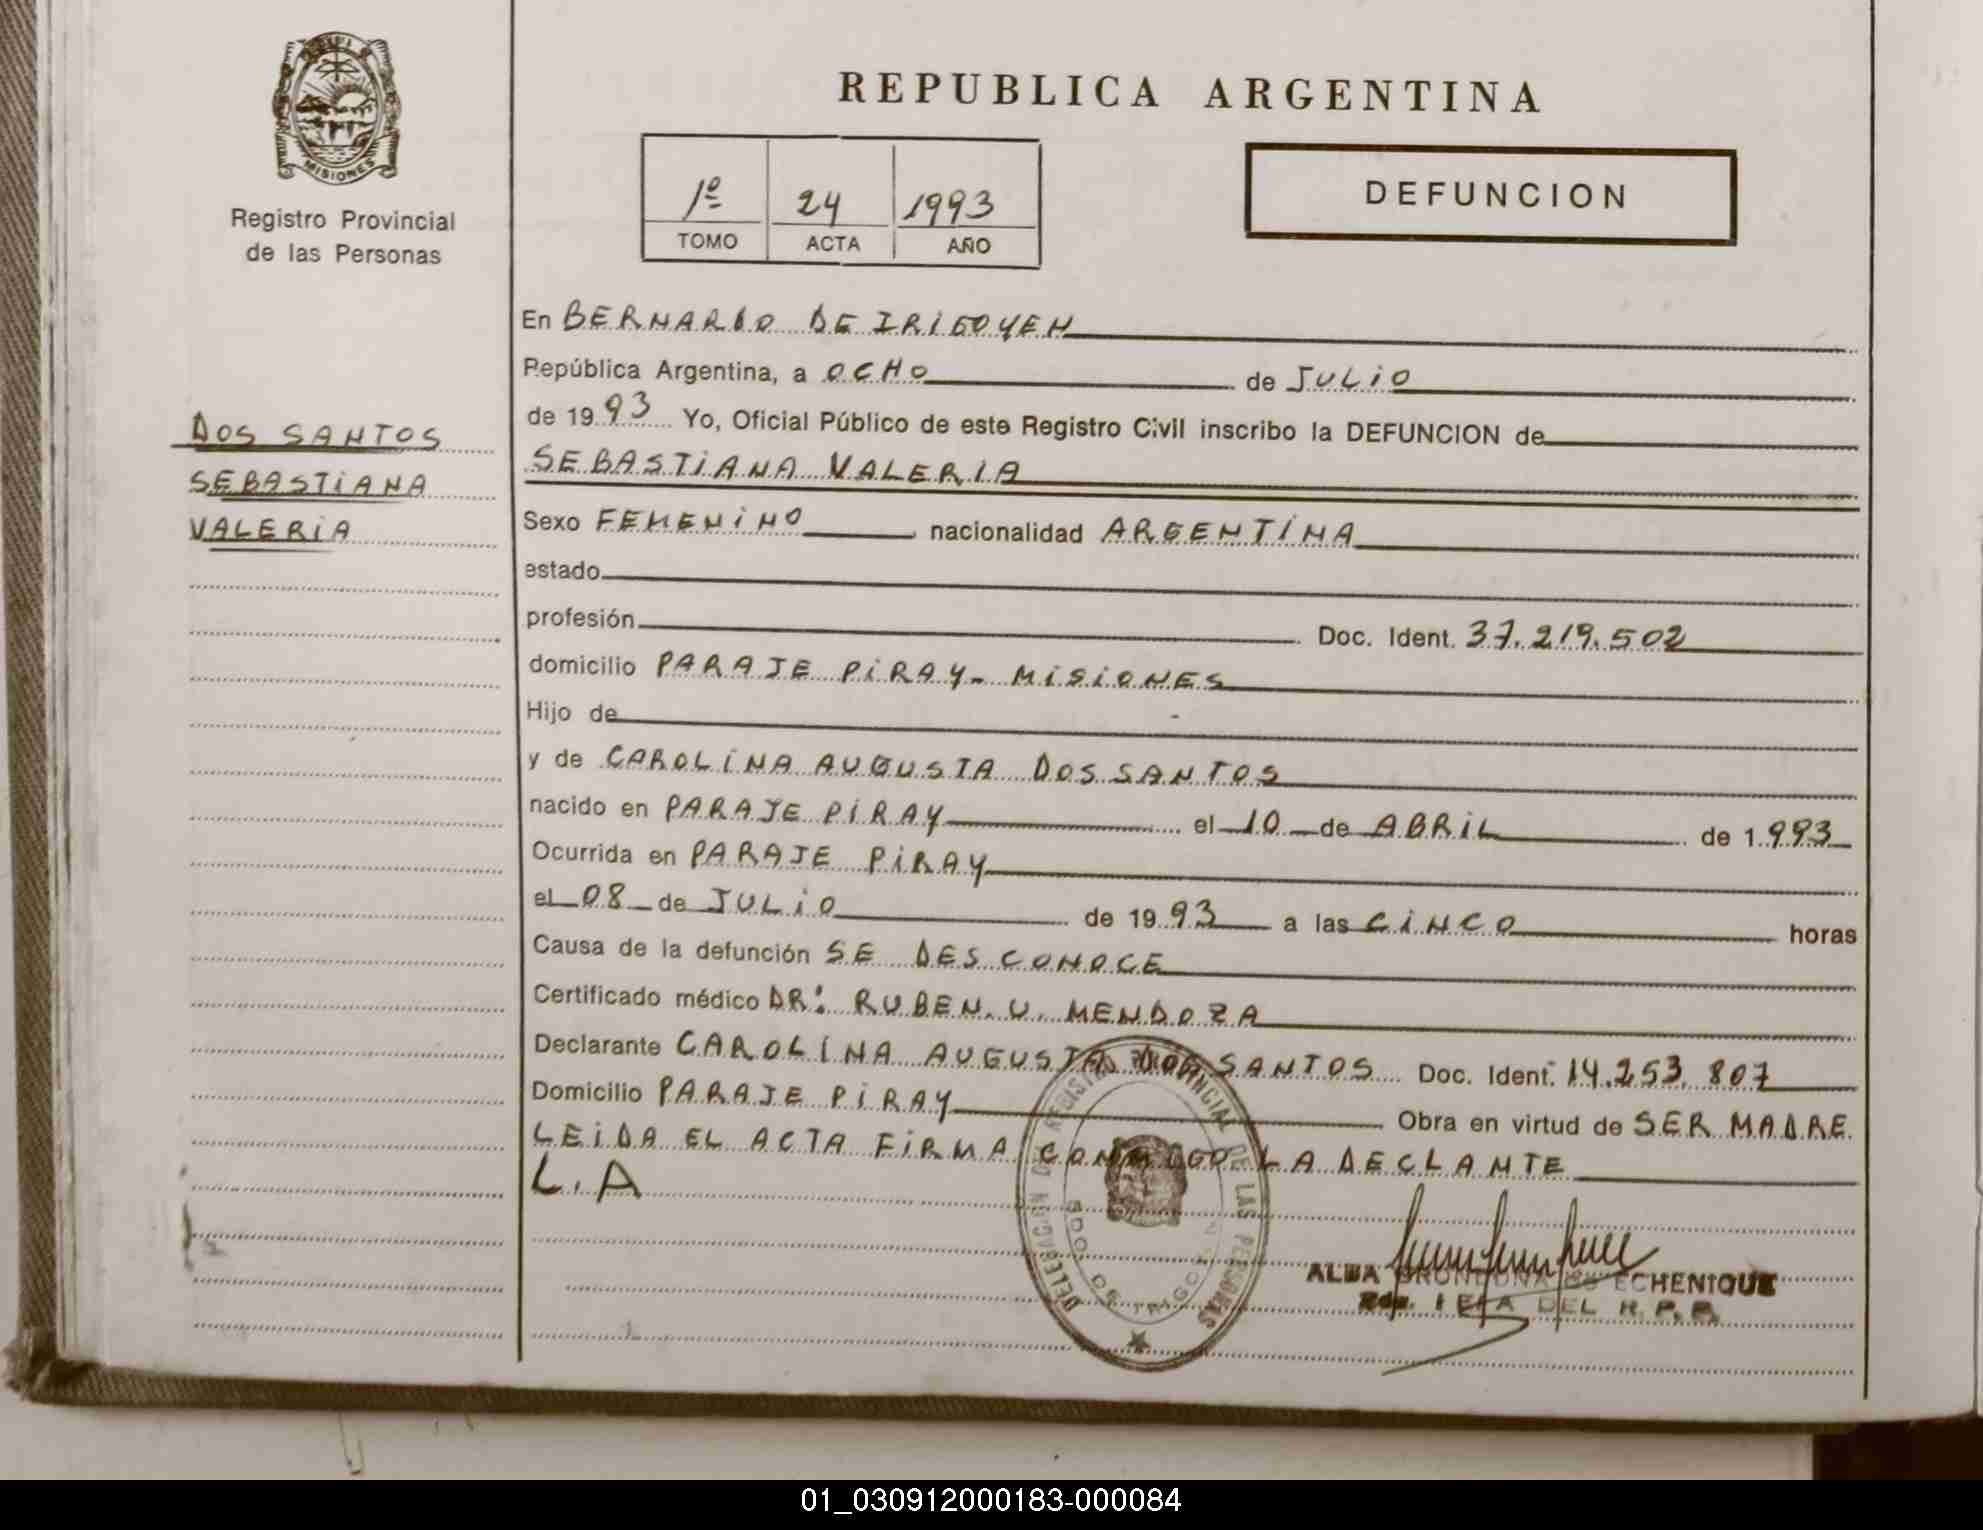 MISIONES
Registro Provincial
de las Personas
DOS SANTOS
SEBASTIANA
VALERIA
REPUBLICA ARGENTINA
1º 24 1993
TOMO ACTA AÑO
DEFUNCION
En BERNARDO DE IRIGOYEN
República Argentina, a OCHO de JULIO
de 1993 Yo, Oficial Público de este Registro Civil inscribo la DEFUNCION de
SEBASTIANA VALERIA
Sexo FEMENINO nacionalidad ARGENTINA
estado
profesión Doc. Ident. 37.219.502
domicilio PARAJE PIRAY - MISIONES
Hijo de
y de CAROLINA AUGUSTA DOS SANTOS
nacido en PARAJE PIRAY el 10 de ABRIL de 1.993
Ocurrida en PARAJE PIRAY
el 08 de JULIO de 1993 a las CINCO horas
Causa de la defunción SE DESCONOCE
Certificado médico DR: RUBEN. U. MENDOZA
Declarante CAROLINA AUGUSTA DOS SANTOS Doc. Ident. 14.253.807
Domicilio PARAJE PIRAY Obra en virtud de SER MADRE
LEIDA EL ACTA FIRMA CONMIGO LA DECLANTE
L.A
DELEGACION DEL REGISTRO PROVINCIAL DE LAS PERSONAS
BDO. DE IRIGOYEN
ALBA DE ECHENIQUE
DEL R. P. P.
01_030912000183-000084